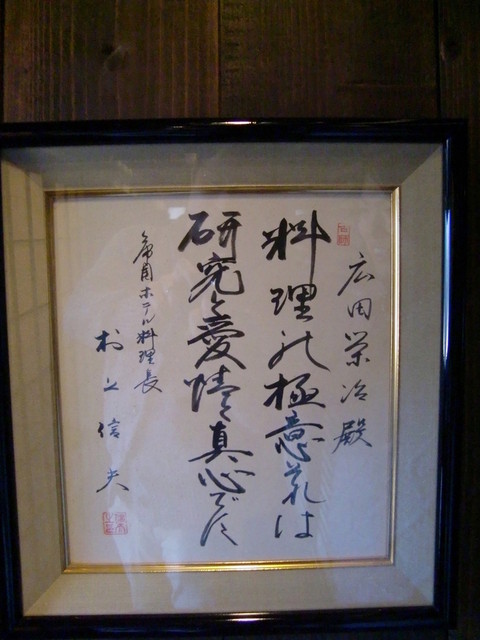 広田栄治殿
料理の極意それは
研究と愛情と真心です
帝国ホテル料理長
村上信夫